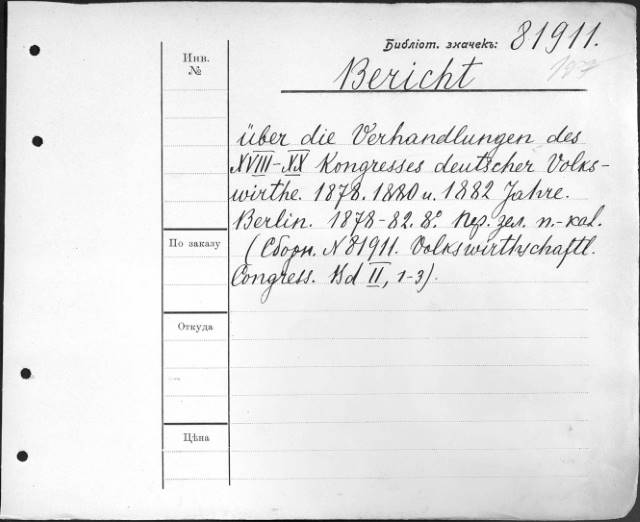 Библіот. значекъ: 81911.
Инв.
№
Bericht
über die Verhandlungen des
XVIII-XX Kongresses deutscher Volks-
wirthe. 1878. 1880 u. 1882 Jahre.
Berlin. 1878-82. 8° Пер. зел. п.-кал.
(Сборн. N 81911. Volkswirthschaftl.
Congress. Bd II, 1-3).
По заказу
Откуда
Цѣна